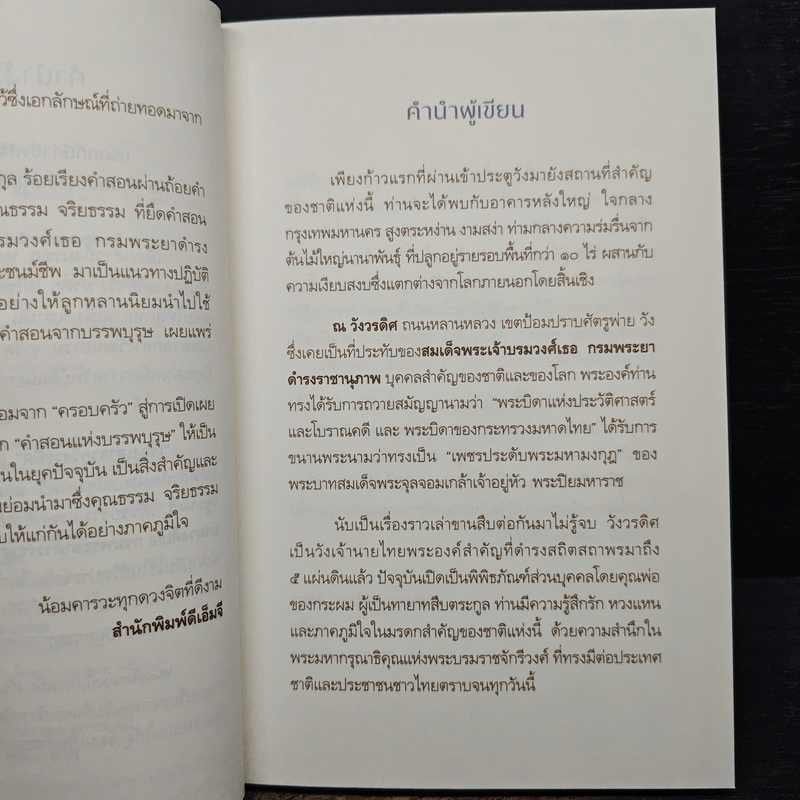 ไว้ซึ่งเอกลักษณ์ที่ถ่ายทอดมาจาก
กุล ร้อยเรียงคำสอนผ่านถ้อยคำ
ณธรรม จริยธรรม ที่ยึดคำสอน
รมวงศ์เธอ กรมพระยาดำรง
ะชนม์ชีพ มาเป็นแนวทางปฏิบัติ
อย่างให้ลูกหลานนิยมนำไปใช้
คำสอนจากบรรพบุรุษ เผยแพร่
อมจาก “ครอบครัว” สู่การเปิดเผย
ก “คำสอนแห่งบรรพบุรุษ” ให้เป็น
นในยุคปัจจุบัน เป็นสิ่งสำคัญและ
ย่อมนำมาซึ่งคุณธรรม จริยธรรม
บให้แก่กันได้อย่างภาคภูมิใจ
น้อมคารวะทุกดวงจิตที่ดีงาม
สำนักพิมพ์ดีเอ็มจี
คำนำผู้เขียน
เพียงก้าวแรกที่ผ่านเข้าประตูวังมายังสถานที่สำคัญ
ของชาติแห่งนี้ ท่านจะได้พบกับอาคารหลังใหญ่ ใจกลาง
กรุงเทพมหานคร สูงตระหง่าน งามสง่า ท่ามกลางความร่มรื่นจาก
ต้นไม้ใหญ่นานาพันธุ์ ที่ปลูกอยู่รายรอบพื้นที่กว่า ๑๐ ไร่ ผสานกับ
ความเงียบสงบซึ่งแตกต่างจากโลกภายนอกโดยสิ้นเชิง
ณ วังวรดิศ ถนนหลานหลวง เขตป้อมปราบศัตรูพ่าย วัง
ซึ่งเคยเป็นที่ประทับของสมเด็จพระเจ้าบรมวงศ์เธอ กรมพระยา
ดำรงราชานุภาพ บุคคลสำคัญของชาติและของโลก พระองค์ท่าน
ทรงได้รับการถวายสมัญญานามว่า “พระบิดาแห่งประวัติศาสตร์
และโบราณคดี และ พระบิดาของกระทรวงมหาดไทย” ได้รับการ
ขนานพระนามว่าทรงเป็น “เพชรประดับพระมหามงกุฎ” ของ
พระบาทสมเด็จพระจุลจอมเกล้าเจ้าอยู่หัว พระปิยมหาราช
นับเป็นเรื่องราวเล่าขานสืบต่อกันมาไม่รู้จบ วังวรดิศ
เป็นวังเจ้านายไทยพระองค์สำคัญที่ดำรงสถิตสถาพรมาถึง
๕ แผ่นดินแล้ว ปัจจุบันเปิดเป็นพิพิธภัณฑ์ส่วนบุคคลโดยคุณพ่อ
ของกระผม ผู้เป็นทายาทสืบตระกูล ท่านมีความรู้สึกรัก หวงแหน
และภาคภูมิใจในมรดกสำคัญของชาติแห่งนี้ ด้วยความสำนึกใน
พระมหากรุณาธิคุณแห่งพระบรมราชจักรีวงศ์ ที่ทรงมีต่อประเทศ
ชาติและประชาชนชาวไทยตราบจนทุกวันนี้